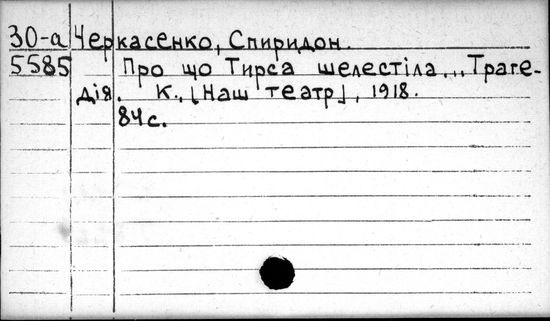 30-а Черкасенко, Спиридон.
5585 Про що Тирса шелестіла... Траге-
дія. К., ⌊Наш театр⌋, 1918.
84 с.